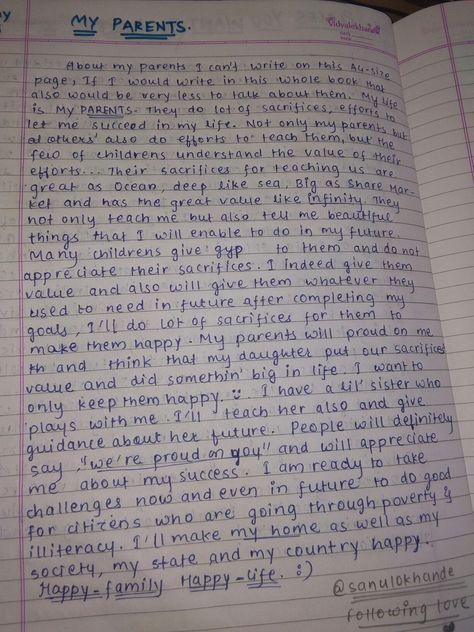 MY PARENTS.
Vidyalokhande
About my parents I can't write on this A4-size
page, If I would write in this whole book that
also would be very less to talk about them. My life
is My PARENTS. They do lot of sacrifices, efforts to
let me succeed in my life. Not only my parents but
at others' also do efforts to teach them, but the
few of childrens understand the value of their
efforts... Their sacrifices for teaching us are
great as Ocean, deep like sea, Big as Share Mar-
ket and has the great value like infinity. They
not only teach me but also tell me beautiful
things that I will enable to do in my future.
Many childrens give gyp to them and do not
appreciate their sacrifices. I indeed give them
value and also will give them whatever they
used to need in future after completing my
goals, I'll do lot of sacrifices for them to
make them happy. My parents will proud on me
th and think that my daughter put our sacrifices
value and did somethin' big in life. I want to
only keep them happy. I have a lil' sister who
plays with me. I'll teach her also and give
guidance about her future. People will definitely
say, "we're proud on you" and will appreciate
me about my success. I am ready to take
challenges now and even in future to do good
for citizens who are going through poverty &
illiteracy. I'll make my home as well as my
society, my state and my country happy.
Happy-family Happy-life. :)
@sanulokhande
following love